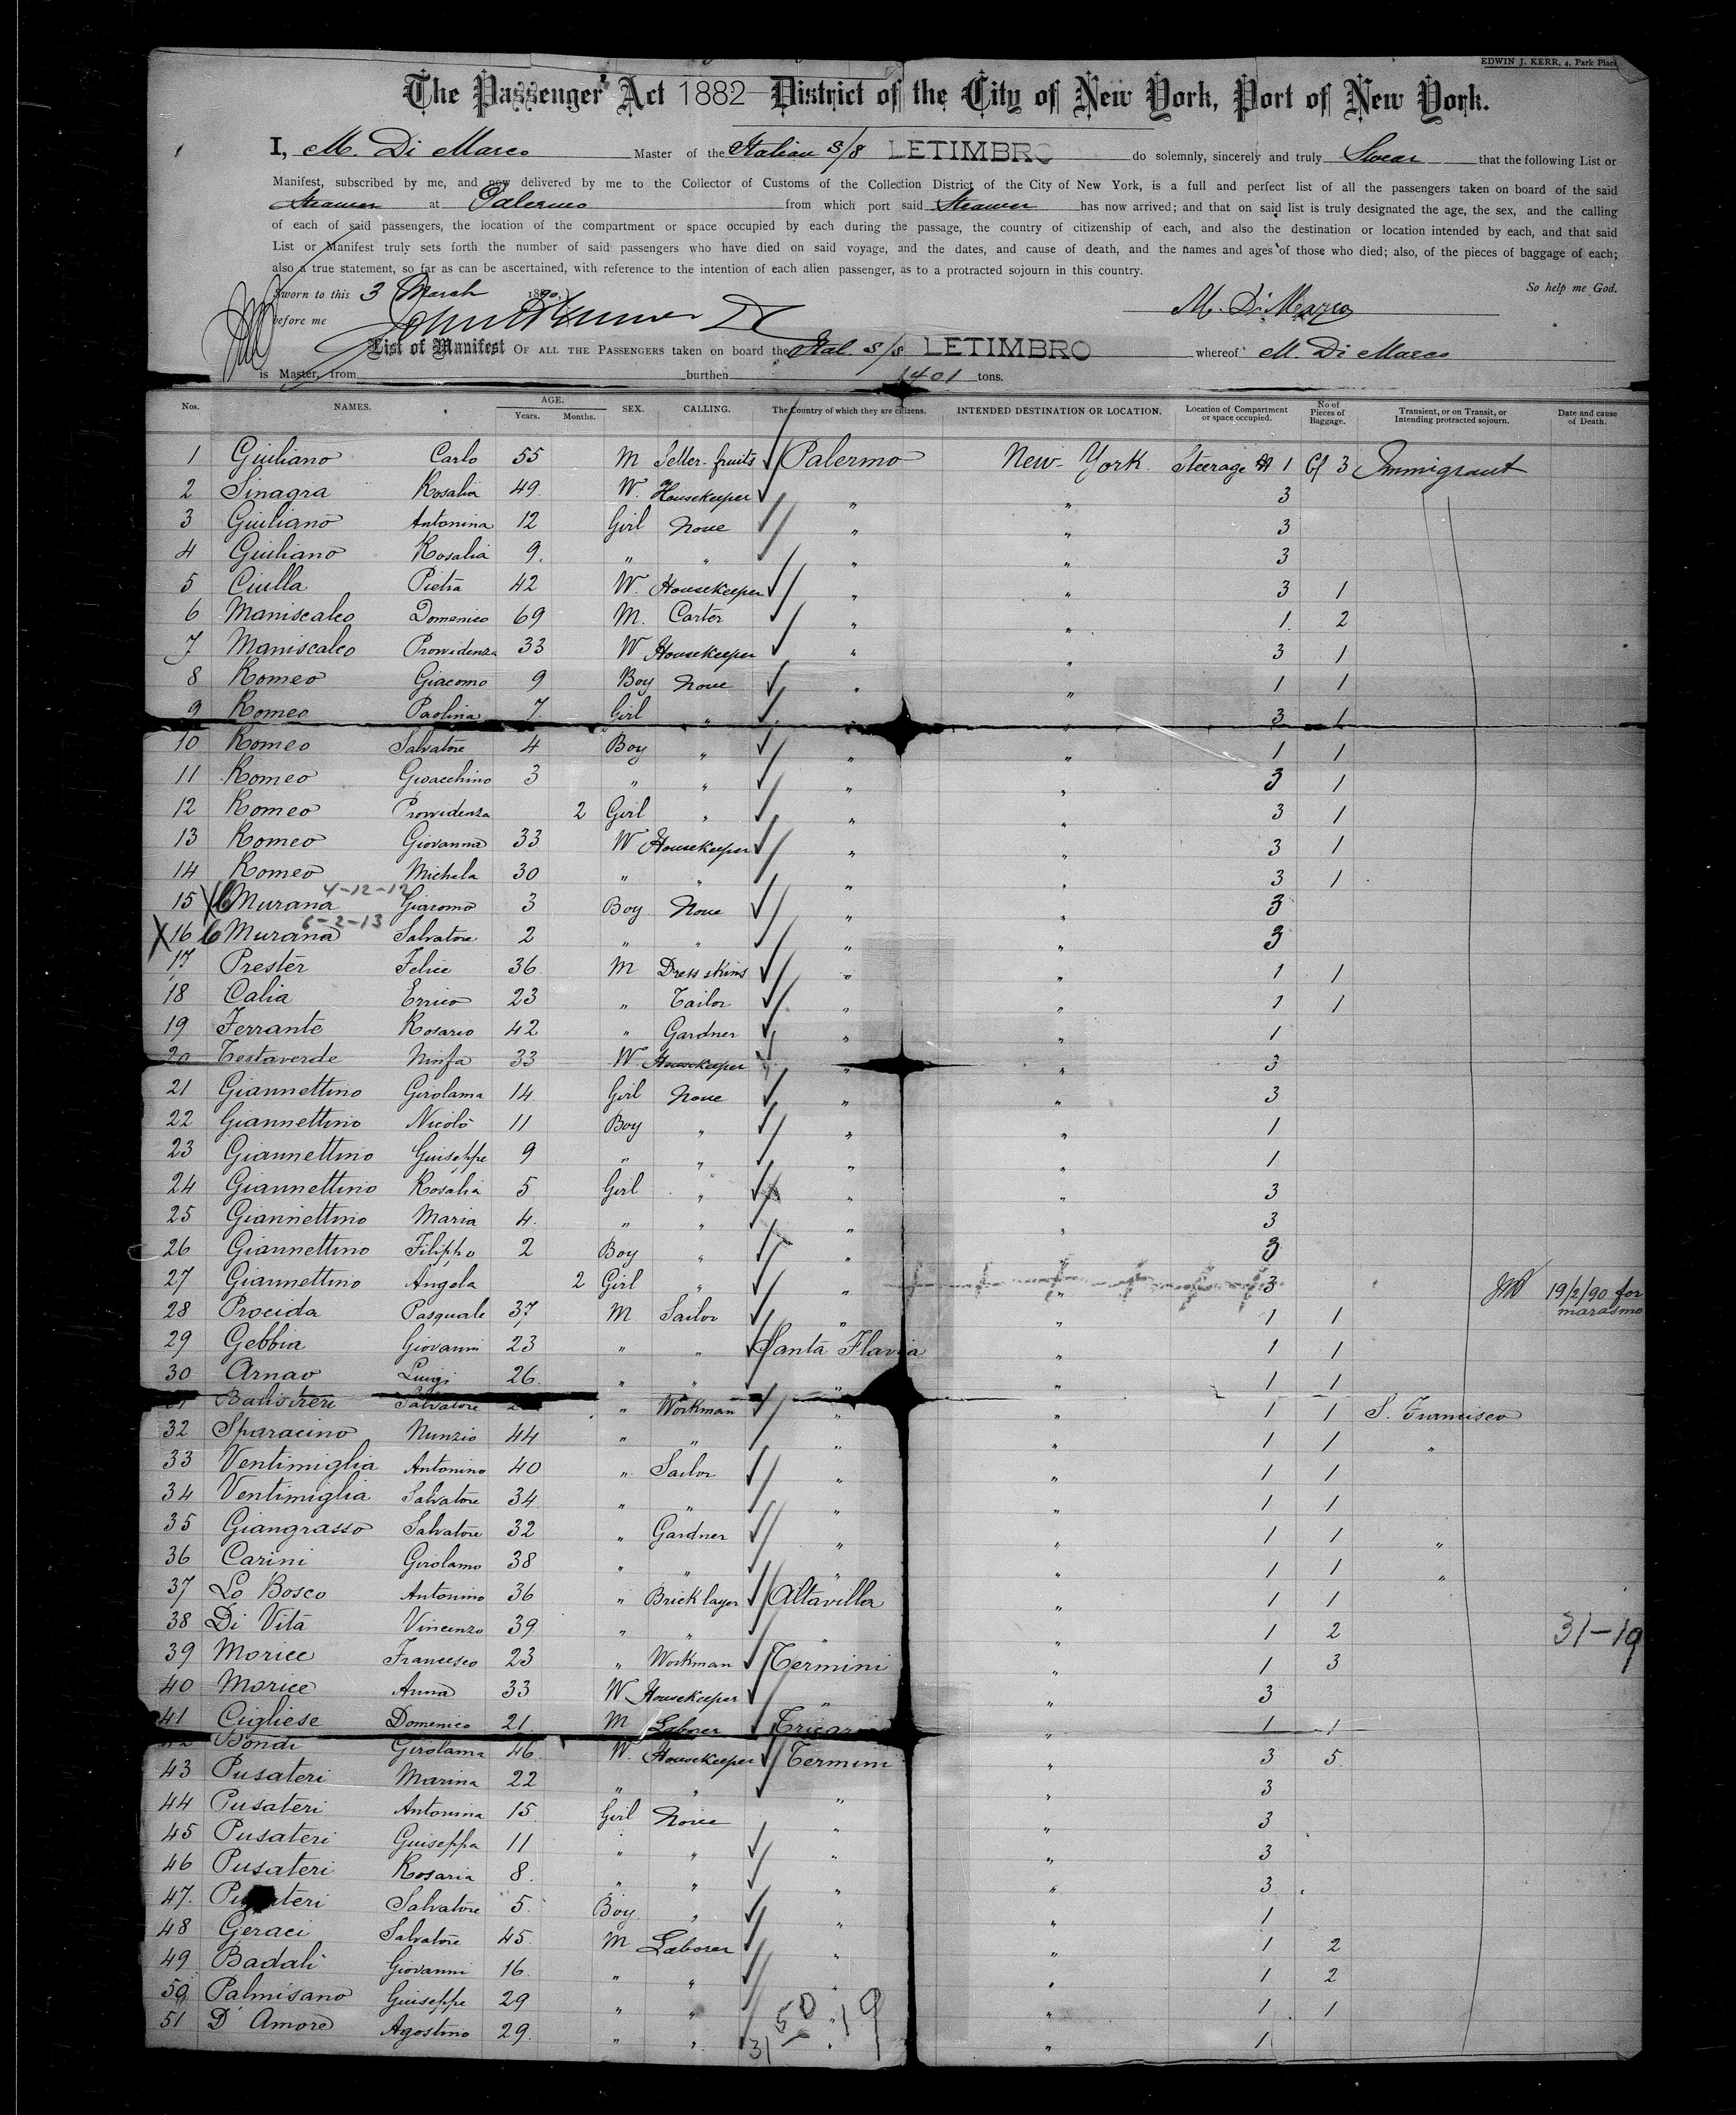 EDWIN J. KERR, 4, Park Place
The Passenger Act 1882 District of the City of New York, Port of New York.
I, M. Di Marco Master of the Italian S/S LETIMBRO do solemnly, sincerely and truly Swear that the following List or
Manifest, subscribed by me, and now delivered by me to the Collector of Customs of the Collection District of the City of New York, is a full and perfect list of all the passengers taken on board of the said
Steamer at Palermo from which port said Steamer has now arrived; and that on said list is truly designated the age, the sex, and the calling
of each of said passengers, the location of the compartment or space occupied by each during the passage, the country of citizenship of each, and also the destination or location intended by each, and that said
List or Manifest truly sets forth the number of said passengers who have died on said voyage, and the dates, and cause of death, and the names and ages of those who died; also, of the pieces of baggage of each;
also a true statement, so far as can be ascertained, with reference to the intention of each alien passenger, as to a protracted sojourn in this country.
Sworn to this 3 March 1890, So help me God.
before me M. Di Marco
List of Manifest OF ALL THE PASSENGERS taken on board the Ital. S/S LETIMBRO whereof M. Di Marco
is Master, from burthen 1401 tons.
Nos. NAMES. AGE. Years. Months. SEX. CALLING. The Country of which they are citizens. INTENDED DESTINATION OR LOCATION. Location of Compartment or space occupied. No of Pieces of Baggage. Transient, or on Transit, or Intending protracted sojourn. Date and cause of Death.
1 Giuliano Carlo 55 M Seller fruits Palermo New-York. Steerage 1 3 Immigrant
2 Sinagra Rosalia 49 W. Housekeeper " " 3
3 Giuliano Antonina 12 Girl None " " 3
4 Giuliano Rosalia 9. " " " " 3
5 Ciulla Pietra 42 W. Housekeeper " " 3 1
6 Maniscalco Domenico 69 M. Carter " " 1. 2
7 Maniscalco Provvidenza 33 W Housekeeper " " 3 1
8 Romeo Giacomo 9 Boy None " " 1 1
9 Romeo Paolina 7 Girl " " " 3 1
10 Romeo Salvatore 4 Boy " " " 1 1
11 Romeo Gioacchino 3 " " " " 3 1
12 Romeo Provvidenza 2 Girl " " " 3 1
13 Romeo Giovanna 33 W Housekeeper " " 3 1
14 Romeo Michela 30 " " " " 3 1
4-12-12
15 Murana Giacomo 3 Boy None " " 3
6-2-13
16 Murana Salvatore 2 " " " " 3
17 Prester Felice 36 M Dress skins " " 1 1
18 Calia Errico 23 " Tailor " " 1 1
19 Ferrante Rosario 42 " Gardner " " 1
20 Testaverde Ninfa 33 W. Housekeeper " " 3
21 Giannettino Girolama 14. Girl None " " 3
22 Giannettino Nicolò 11 Boy " " " 1
23 Giannettino Guiseppe 9 " " " " 1
24 Giannettino Rosalia 5 Girl " " " 3
25 Giannettino Maria 4. " " " " 3
26 Giannettino Filippo 2 Boy " " " 3
27 Giannettino Angela 2 Girl " " " 3 19/2/90 for marasmo
28 Procida Pasquale 37 M Sailor " " 1 1
29 Gebbia Giovanni 23 " " Santa Flavia " 1 1
30 Arnao Luigi 26. " " " " 1 1
Balistreri Salvatore " Workman " " 1 1 S. Francisco
32 Sparacino Nunzio 44 " " " " 1 1 "
33 Ventimiglia Antonino 40 " Sailor " " 1 1
34 Ventimiglia Salvatore 34 " " " " 1 1
35 Giangrasso Salvatore 32 " Gardner " " 1 1 "
36 Carini Girolamo 38 " " " " 1 1 "
37 Lo Bosco Antonino 36 " Bricklayer Altavilla " 1 1
38 Di Vita Vincenzo 39 " " " " 1 2 31-19
39 Morice Francesco 23 " Workman Termini " 1 3
40 Morice Anna 33 W Housekeeper " " 3
41 Cugliese Domenico 21 M Laborer " 1 1
Bondi Girolama 46 W. Housekeeper Termini " 3 5
43 Pusateri Marina 22 " " " " 3
44 Pusateri Antonina 15 Girl None " " 3
45 Pusateri Guiseppa 11 " " " " 3
46 Pusateri Rosaria 8. " " " " 3
47. Pusateri Salvatore 5. Boy " " " 1
48 Geraci Salvatore 45. M Laborer " " 1 2
49 Badali Giovanni 16. " " " " 1 2
50 Palmisano Guiseppe 29 " " " " 1 1
51 D'Amore Agostino 29. " " " " 1
50
31 - 19